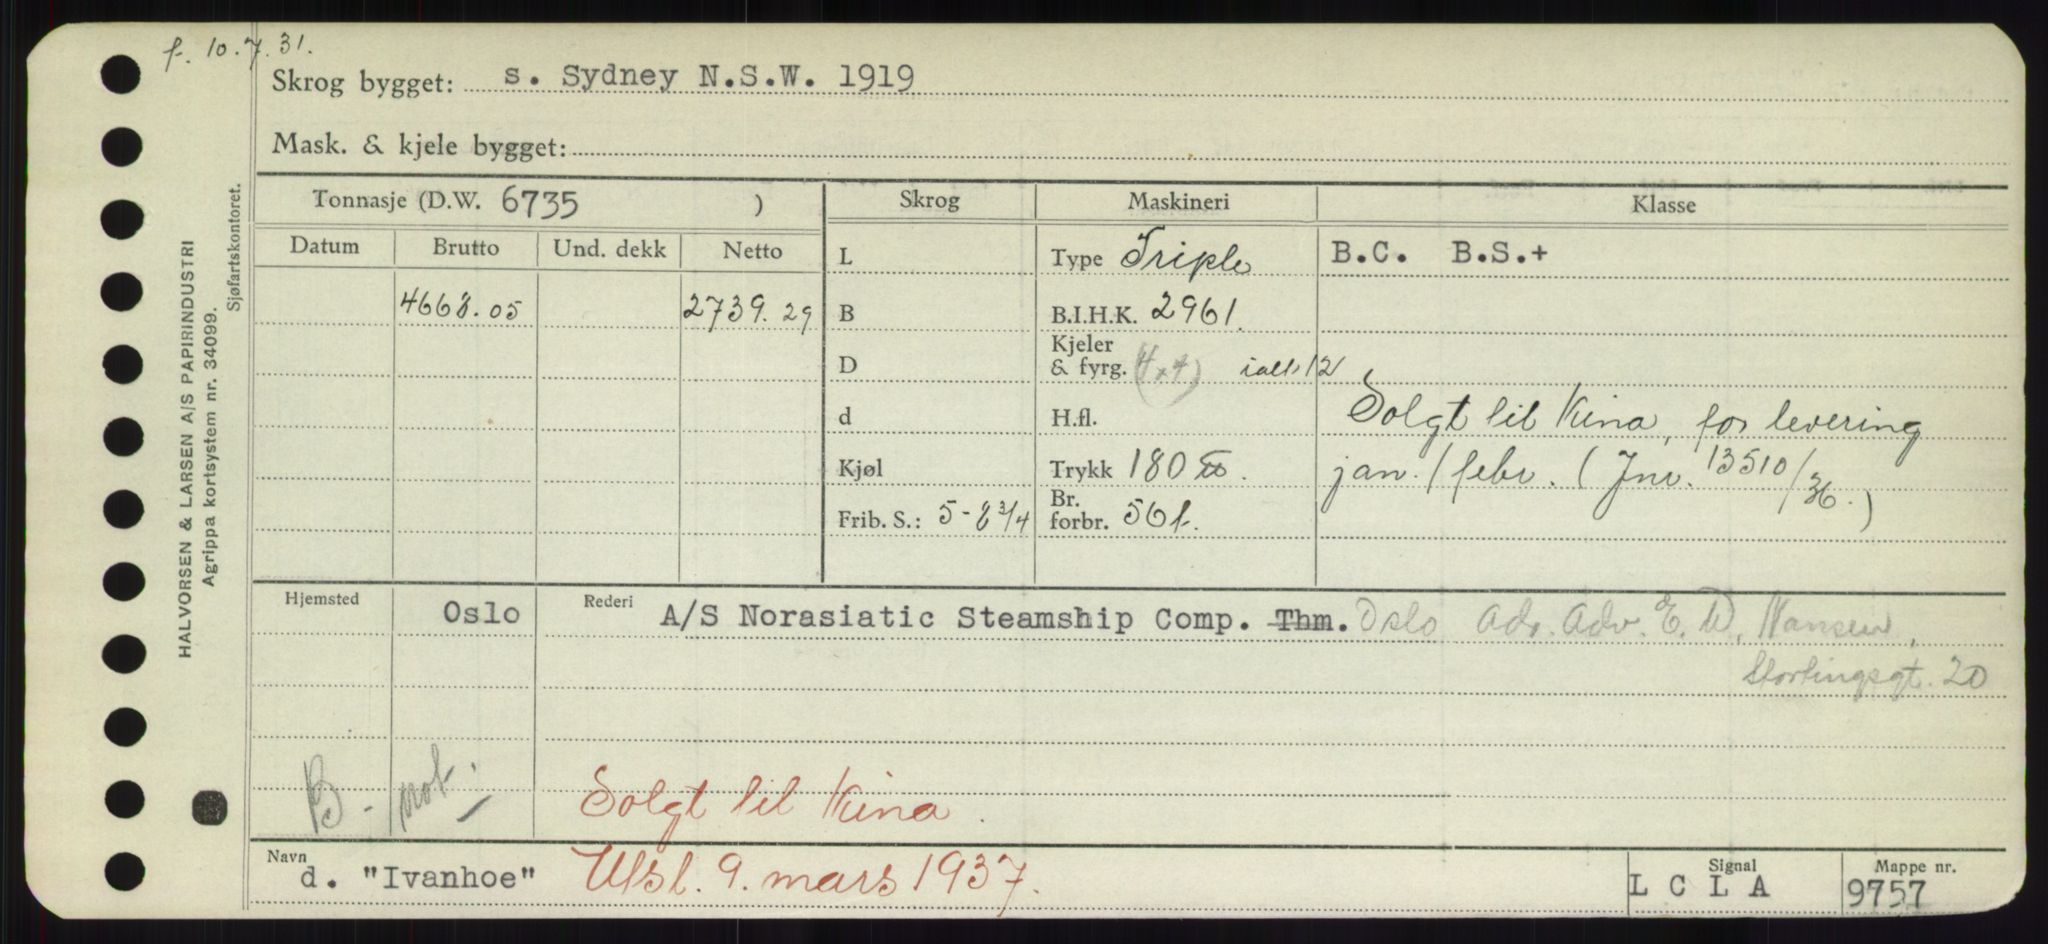 f. 10.7.31.
Skrog bygget: s. Sydney N.S.W. 1919
Mask. & kjele bygget:
HALVORSEN & LARSEN A/S PAPIRINDUSTRI
Agrippa kortsystem nr. 34099.
Sjøfartskontoret.
Tonnasje (D.W. 6735 ) Skrog Maskineri Klasse
Datum Brutto Und. dekk Netto L Type Triple B.C. B.S.+
4668.05 2739.29 B B.I.H.K. 2961.
D Kjeler & fyrg. (4x4) ialt 12
d H.fl. Solgt til Kina, for levering
Kjøl Trykk 180 jan./febr. (Jnr. 13510/36.)
Frib. S.: 5-8 3/4 Br. forbr. 50 t.
Hjemsted Oslo Rederi A/S Norasiatic Steamship Comp. Thm. Oslo Adr. Adv. E. W. Hansen,
Stortingsgt. 20
B - not.
Solgt til Kina.
Navn d. "Ivanhoe" Utsl. 9. mars 1937. Signal L C L A Mappe nr. 9757